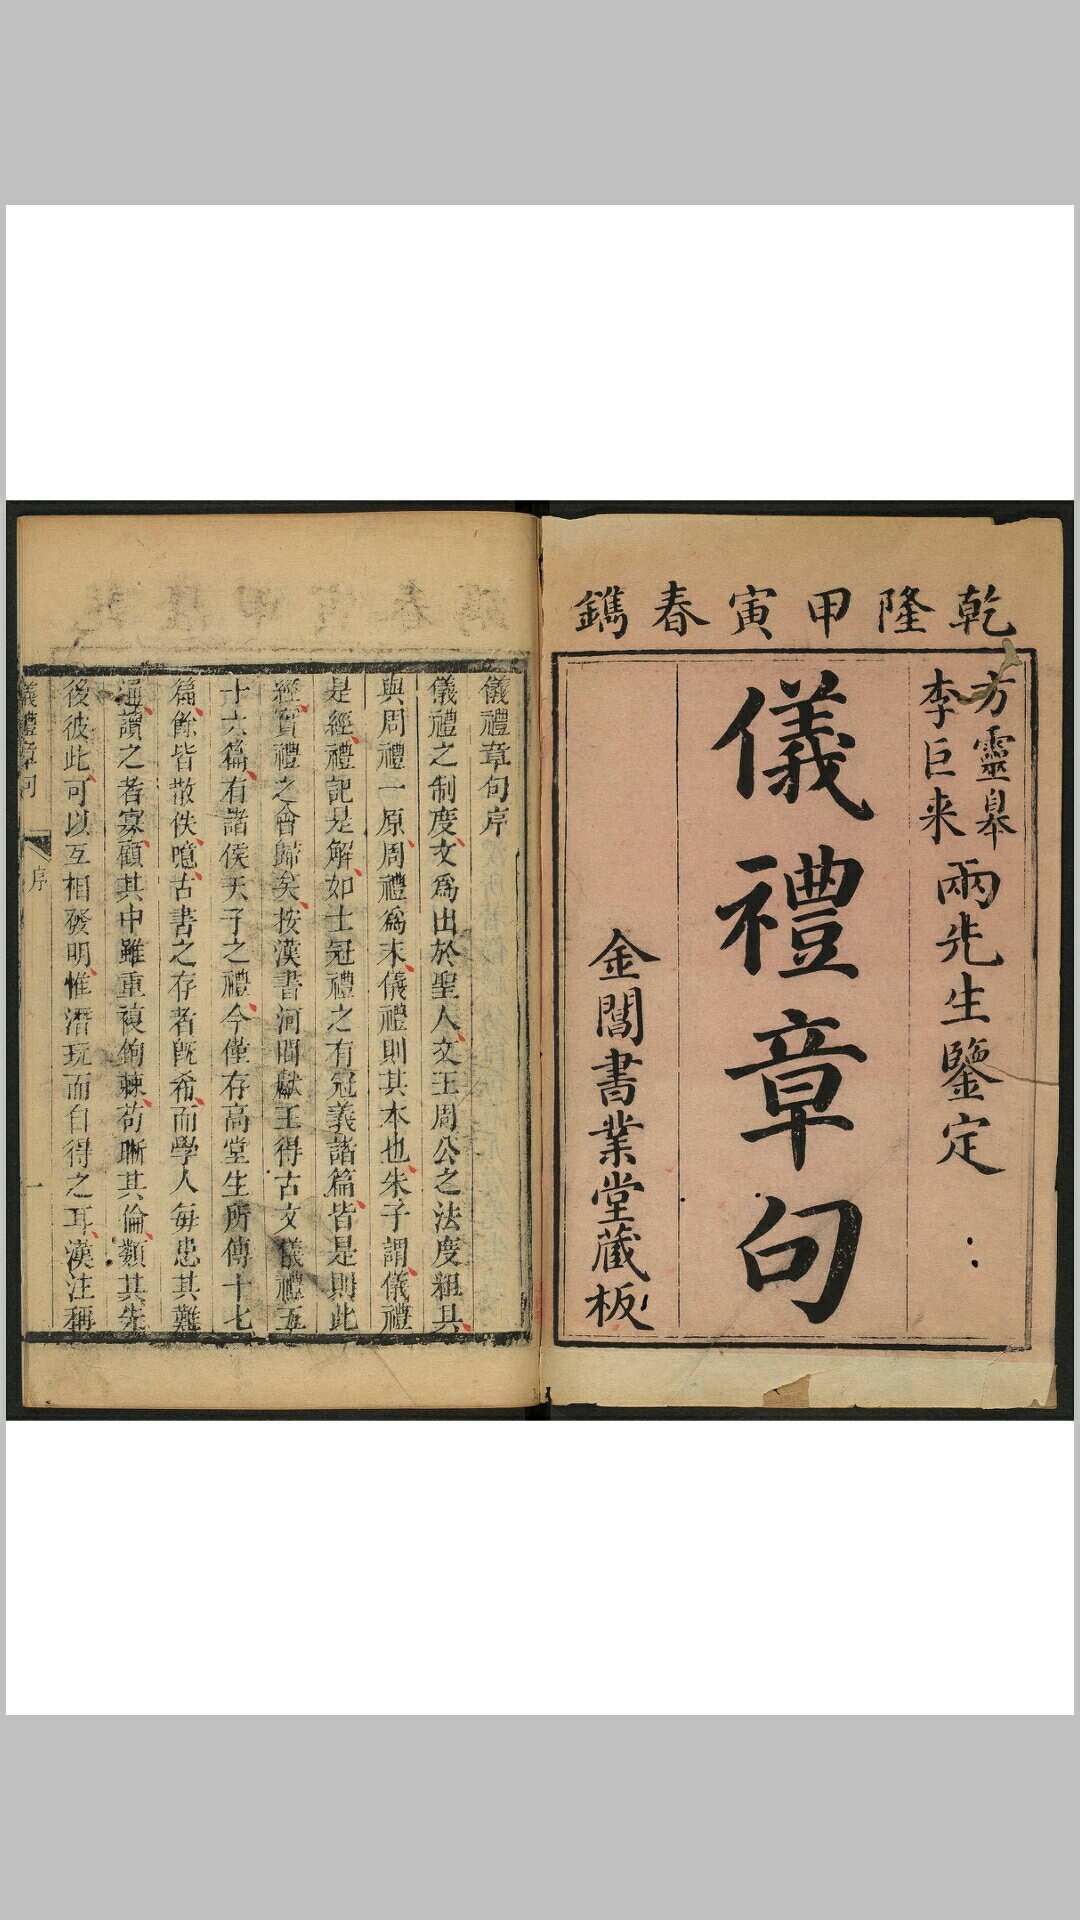 乾隆甲寅春鐫
方靈皋
李巨来
兩先生鑒定
儀禮章句
金閶書業堂藏板
儀禮章句序
儀禮之制度文爲出於聖人文王周公之法度粗具
與周禮一原周禮爲末儀禮則其本也朱子謂儀禮
是經禮記是解如士冠禮之有冠義諸篇皆是則此
經實禮之會歸矣按漢書河間獻王得古文儀禮五
十六篇有諸侯天子之禮今僅存高堂生所傳十七
篇餘皆散佚噫古書之存者旣希而學人每患其難
通讀之者寡顧其中雖重複鉤棘苟晰其倫類其先
後彼此可以互相發明惟潛玩而自得之耳漢注稱
儀禮章句
序
一